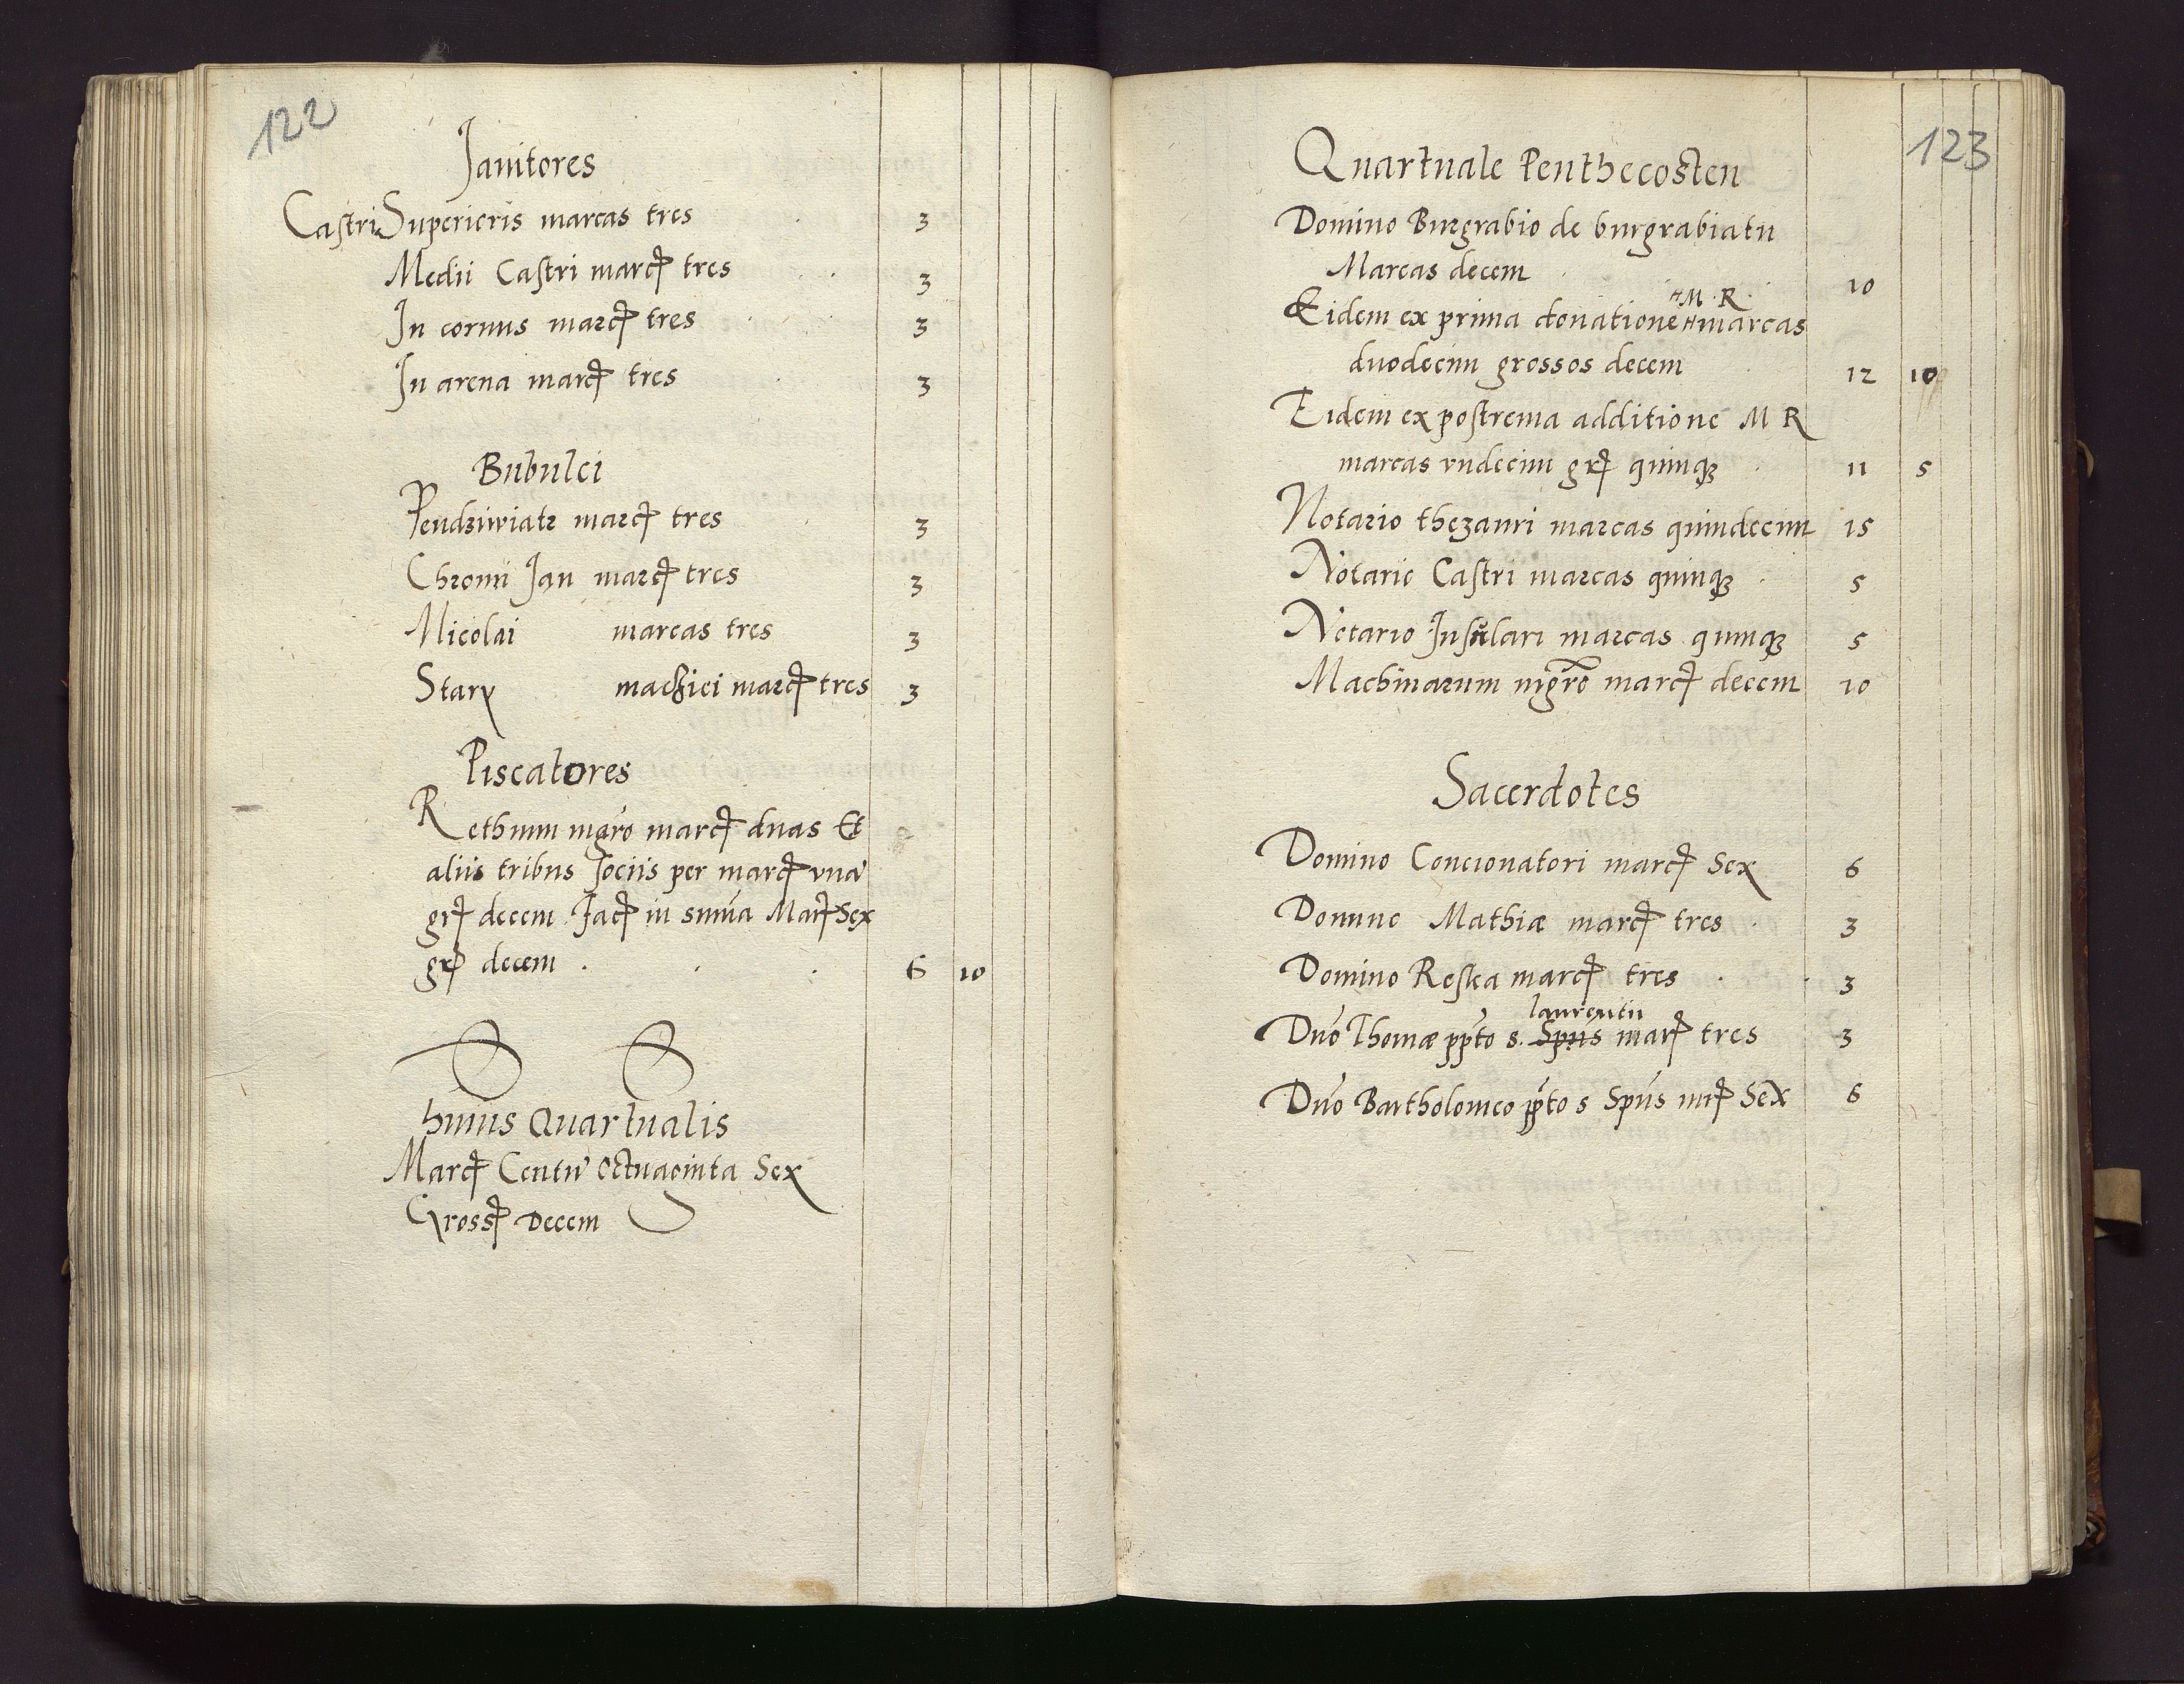 122
Janitores
Castri Superioris marcas tres 3
Medii Castri marcꝭ tres 3
In cornus marcꝭ tres 3
In arena marcꝭ tres 3
Bubulci
marcꝭ tres 3
Chromi Jan marcꝭ tres 3
Nicolai marcas tres 3
Stary marcꝭ tres 3
Piscatores
Rethmm mgrō marcꝭ duas Et
aliis tribus sociis per marcꝭ vnā
grꝭ decem Jacꝭ in sūma Marꝭ Sex
grꝭ decem 6 10
huius Quartualis
Marcꝭ Centū Octuaginta Sex
Grossꝭ Decem
123
Quartuale Penthecosten
Domino Burgrabio de burgrabiatu
Marcas decem 10
M. R.
Eidem ex prima donatione marcas
duodecim grossos decem 12 10
Eidem ex postrema additione M R
marcas vndecim grꝭ quinqꝫ 11 5
Notario thezauri marcas quindecim 15
Notario Castri marcas quinqꝫ 5
Notario Insulari marcas quinqꝫ 5
Machinarum mgrō marcꝭ decem 10
Sacerdotes
Domino Concionatori marcꝭ Sex 6
Domino Mathiæ marcꝭ tres 3
Domino Reska marcꝭ tres 3
laurentii
Dn̄o Thomæ pp̄to s. Spūs marꝭ tres 3
Dn̄o Bartholomeo pp̄to s Spūs mrꝭ Sex 6